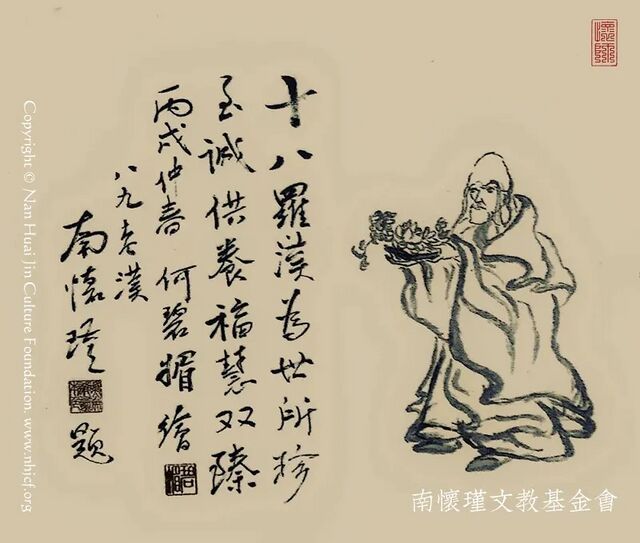 十八羅漢為世所珍
至誠供養福慧双臻
丙戌仲春 何碧媚繪
八九老漢
南懷瑾 題
南懷瑾文教基金會
Copyright © Nan Huai Jin Culture Foundation. www.nhjcf.org